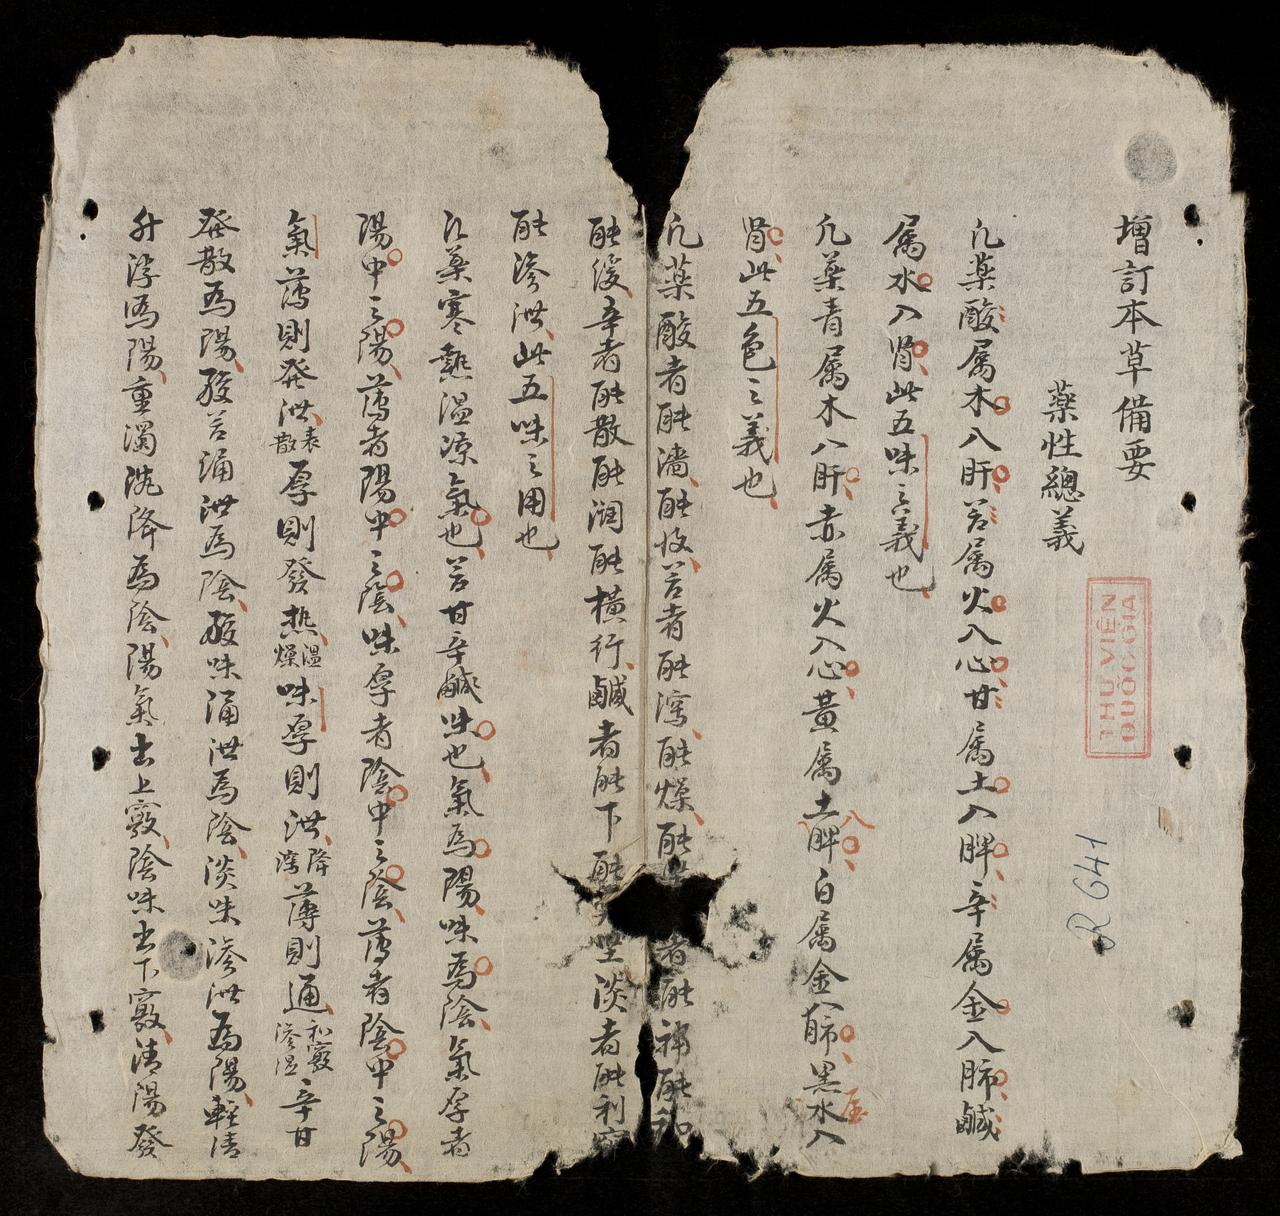 增訂本草備要
藥性總義
凡藥酸属木入肝苦属火入心甘属土入脾辛属金入肺鹹
属水入腎此五味之義也
凡藥青属木入肝赤属火入心黃属土入脾白属金入肺黑属水入
腎此五色之義也
凡藥酸者能濇能收苦者能瀉能燥能 者能補能和
能緩辛者能散能潤能橫行鹹者能下能 堅淡者能利竅
能滲泄此五味之用也
凡藥寒熱溫凉氣也苦甘辛鹹味也氣爲陽味爲陰氣厚者
陽中之陽薄者陽中之陰味厚者陰中之陰薄者陰中之陽
氣薄則發泄表散厚則發热溫燥味厚則泄降瀉薄則通利竅滲濕辛甘
發散爲陽酸苦涌泄爲陰酸味涌泄爲陰淡味滲泄爲陽輕清
升浮爲陽重濁沉降爲陰陽氣出上竅陰味出下竅清陽發
THƯ VIỆN
QUỐC GIA
R 641